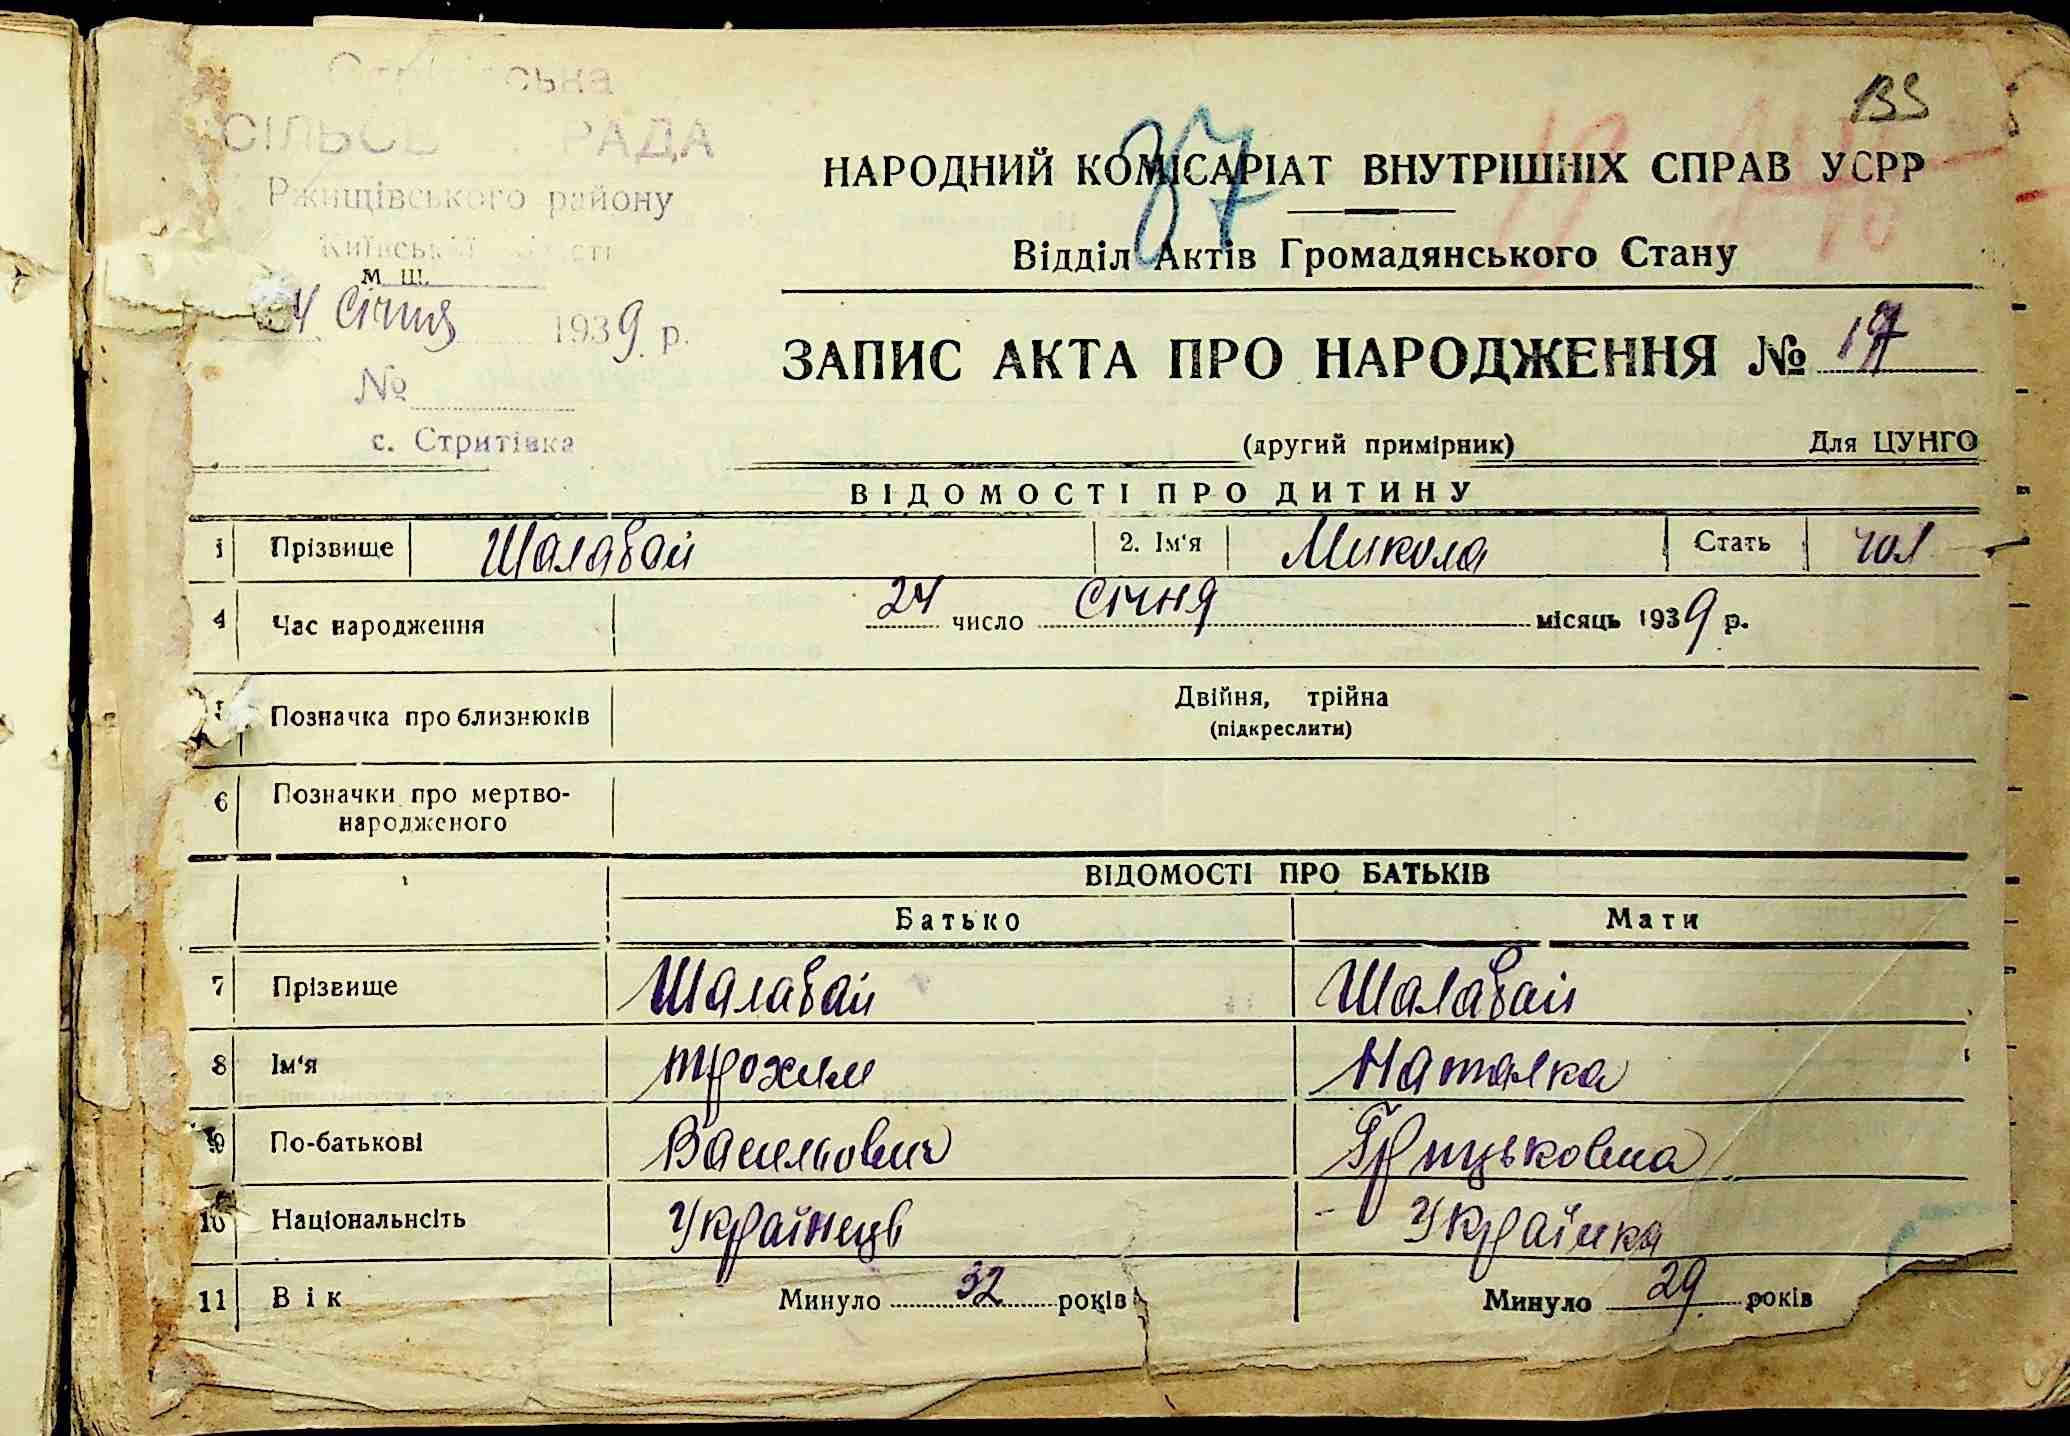 СІЛЬСЬ РАДА
Ржищівського району
Київської
м. ш.
4 Січня 1939 р.
№
с. Стритівка
133
87
19
НАРОДНИЙ КОМІСАРІАТ ВНУТРІШНІХ СПРАВ УСРР
Відділ Актів Громадянського Стану
ЗАПИС АКТА ПРО НАРОДЖЕННЯ № 17
(другий примірник) Для ЦУНГО
ВІДОМОСТІ ПРО ДИТИНУ
1 Прізвище Шалабай 2. Ім'я Микола Стать чол
4 Час народження 24 число Січня місяць 1939 р.
5 Позначка про близнюків Двійня, трійна
(підкреслити)
6 Позначки про мертво-
народженого
ВІДОМОСТІ ПРО БАТЬКІВ
Батько Мати
7 Прізвище Шалабай Шалабай
8 Ім'я Трохим Наталка
9 По-батькові Василиович Грицьковна
10 Національнсіть Українець Українка
11 Вік Минуло 32 років Минуло 29 років